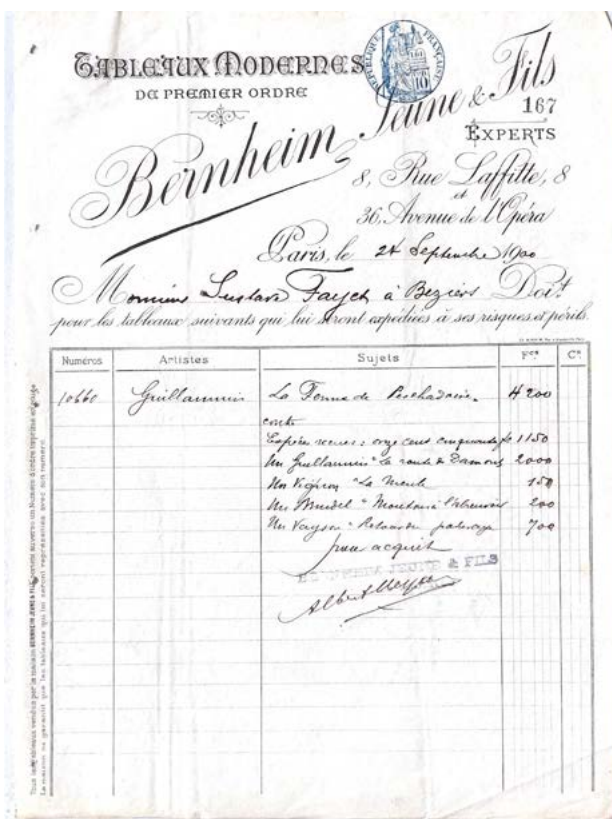 TABLEAUX MODERNES
DE PREMIER ORDRE
RÉPUBLIQUE FRANÇAISE
10
Bernheim Jeune & Fils
167
EXPERTS
8, Rue Laffitte, 8
et
36, Avenue de l'Opéra
Paris, le 24 Septembre 1900
Monsieur Gustave Fayet à Béziers Doit
pour les tableaux suivants qui lui seront expédiées à ses risques et périls.
Numéros Artistes Sujets Fcs Cs
10660 Guillaumin La Ferme de 4200
contre
Espèces reçues : onze cent cinquante fr 1150
Un Guillaumin "la route de Damour 2000
Un Vignon "La Meule 150
Un "Moutons à l'abreuvoir 200
Un Vayson "Retour du pâturage 700
pour acquit
BERNHEIM JEUNE & FILS
Tous les tableaux vendus par la maison BERNHEIM JEUNE & FILS portent au verso un Numéro d'ordre imprimé en rouge
La maison ne garantit que les tableaux qui lui seront représentés avec son numéro.